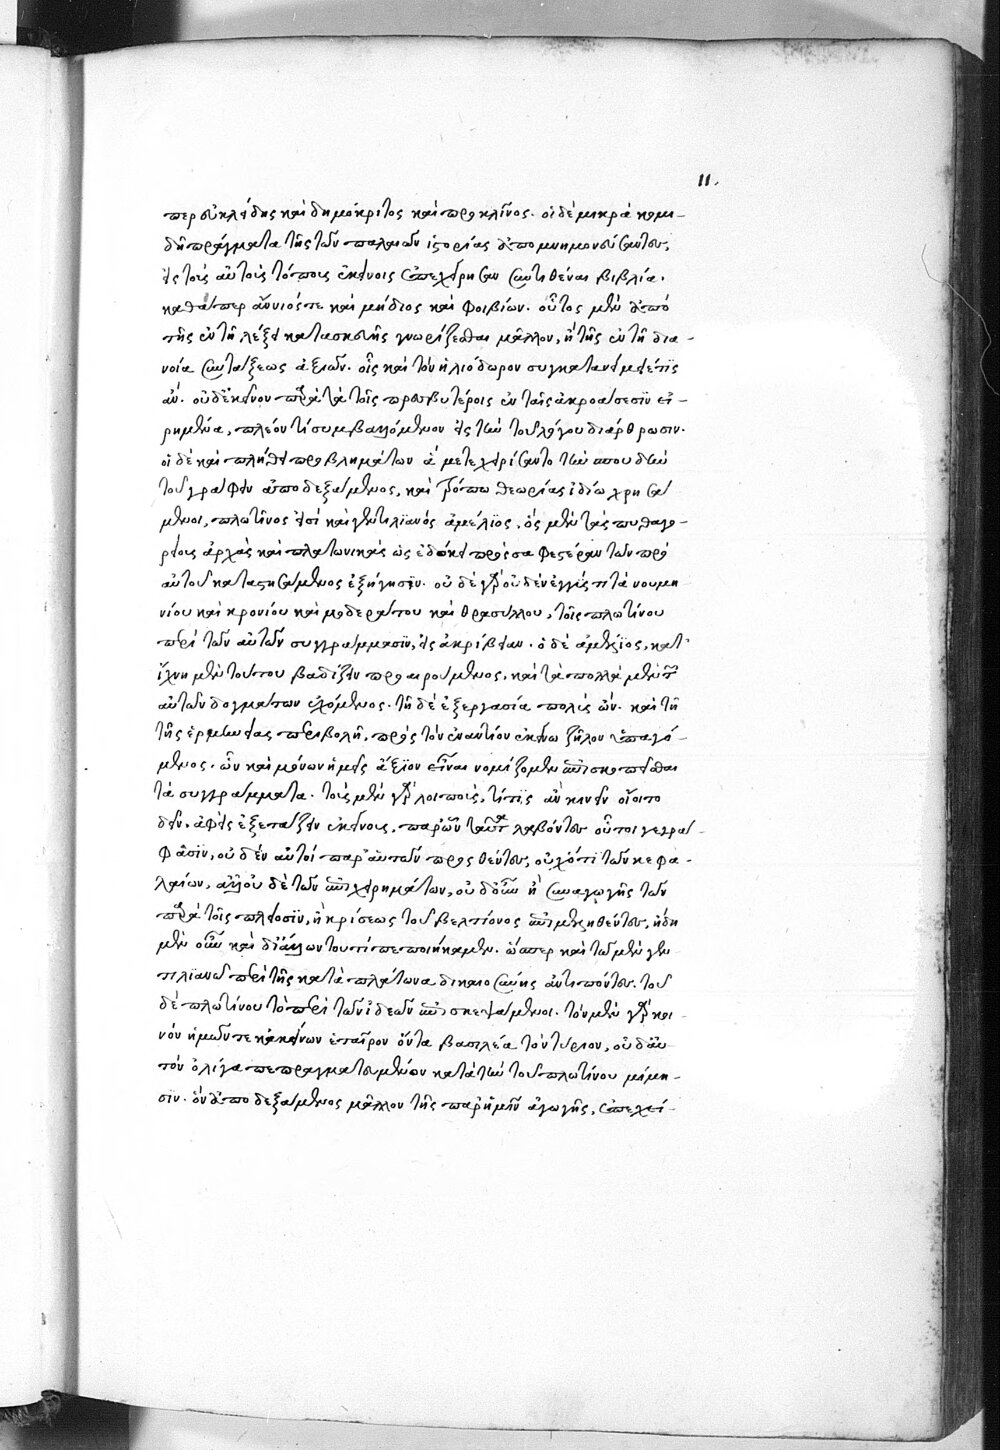 11.
περ εὐκλείδης καὶ δημόκριτος καὶ προκλῖνος. οἱ δὲ μικρὰ κομι-
δῆ πράγματα τῆς τῶν παλαιῶν ἱστορίας ἀπομνημονεύσαντες,
εἰς τοὺς αὐτοὺς τόποις ἐκείνοις ἐπεχείρησαν συντιθέναι βιβλία.
καθάπερ ἄννιός τε καὶ μήδιος καὶ φοιβίων. οὗτος μὲν ἀπὸ
τῆς ἐν τῇ λέξει κατασκευῆς γνωρίζεσθαι μᾶλλον, ἢ τῆς ἐν τῇ δια-
νοία συντάξεως ἀξιῶν. οἷς καὶ τὸν ἡλιόδωρον συγκατανείμειέ τις
ἄν. οὐδὲ κεῖνον παρὰ τὰ τοῖς πρεσβυτέροις ἐν ταῖς ἀκροάσεσιν εἰ-
ρημένα, πλέον τι συμβαλλόμενον εἰς τὴν τοῦ λόγου διάρθρωσιν.
οἱ δὲ καὶ πλήθει προβλημάτων ἃ μετεχειρίσαντο τὴν σπουδὴν
τοῦ γράφειν ἀποδεξάμενος, καὶ τρόπω θεωρίας ἰδίω χρησά
μενοι, πλωτῖνος εἰσὶ καὶ γεντιλιανὸς ἀμέλιος, ὃς μὲν τὰς πυθαγο-
ρείους ἀρχὰς καὶ πλατωνικὰς ὡς ἐδόκει πρὸς σαφεστέραν τῶν πρὸ
αὐτοῦ καταστησάμενος ἐξήγησιν. οὐδὲ γὰρ οὐδὲν ἐγγύς τι τὰ νουμη
νίου καὶ κρονίου καὶ μοδεράτου καὶ θρασύλλου, τοῖς πλωτίνου
περὶ τῶν αὐτῶν συγγράμμασιν, εἰς ἀκρίβειαν. ὁ δὲ ἀμέλιος, κατ'
ἴχνη μὲν τούτου βαδίζειν προαιρούμενος, καὶ τὰ πολλὰ μὲν τῶν
αὐτῶν δογμάτων ἐχόμενος. τῇ δὲ ἐξεργασία πολὺς ὤν. καὶ τῇ
τῆς ἑρμηνείας περιβολῇ, πρὸς τὸν ἐναντίον ἐκείνω ζῆλον ὑπαγό-
μενος. ὧν καὶ μόνων ἡμεῖς ἄξιον εἶναι νομίζομεν ἐπισκοπεῖσθαι
τὰ συγγράμματα. τοὺς μὲν γὰρ λοιποὺς, τί τις ἂν κινεῖν οἴοιτο
δεῖν. ἀφεὶς ἐξετάζειν ἐκείνους, παρ' ὧν ταῦτα λαβόντες οὗτοι γεγρά-
φασιν, οὐδὲν αὐτοὶ παρ' αὑτῶν προσθέντες, οὐχ ὅτι τῶν κεφα-
λαίων, ἀλλ' οὐδὲ τῶν ἐπιχειρημάτων, οὐδ' οὖν ἢ συναγωγῆς τῶν
παρὰ τοῖς πλείοσιν, ἢ κρίσεως τοῦ βελτίονος ἐπιμεληθέντες, ἤδη
μὲν οὖν καὶ δι' ἄλλων τουτὶ πεποιήκαμεν. ὥσπερ καὶ τῶ μὲν γεν
τιλιανῶ περὶ τῆς κατὰ πλάτωνα δικαιοσύνης ἀντειπόντες. τοῦ
δὲ πλωτίνου τὸ περὶ τῶν ἰδεῶν ἐπισκεψάμενοι. τὸν μὲν γὰρ κοι-
νὸν ἡμῶν τε κἀκείνων ἑταῖρον ὄντα βασιλέα τὸν τύριον, οὐδ' αὐ
τὸν ὀλίγα πεπραγματευμένον κατὰ τὴν τοῦ πλωτίνου μίμη-
σιν. ὃν ἀποδεξάμενος μᾶλλον τῆς παρ' ἡμῖν ἀγωγῆς, ἐπεχεί-